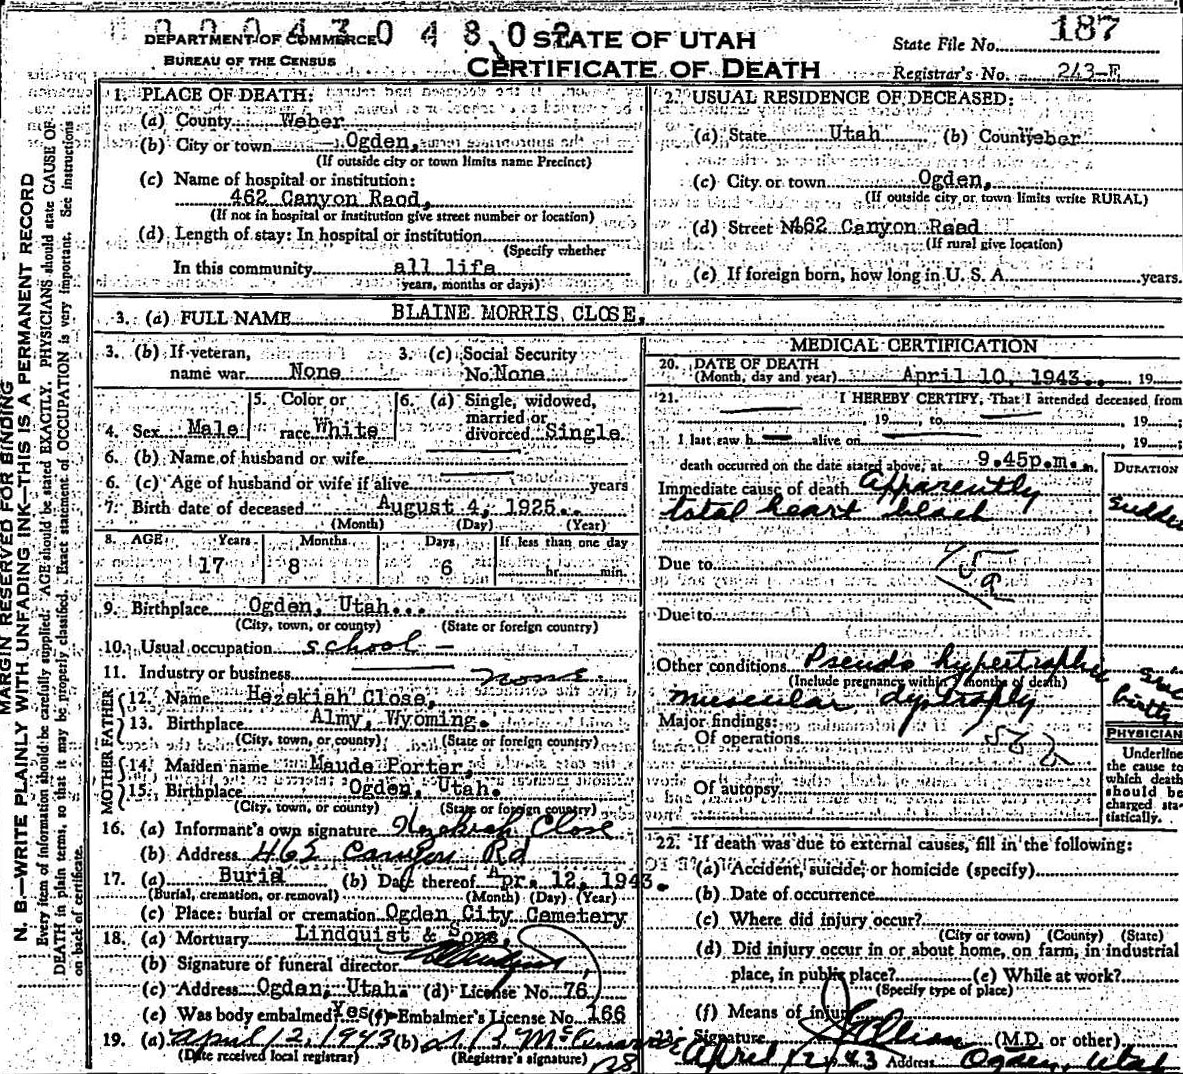 0 0 0 4 3 0 4 8 0 2
DEPARTMENT OF COMMERCE
BUREAU OF THE CENSUS
STATE OF UTAH
CERTIFICATE OF DEATH
State File No. 187
Registrar's No. 243-E
MARGIN RESERVED FOR BINDING
N. B.—WRITE PLAINLY WITH UNFADING INK—THIS IS A PERMANENT RECORD
Every item of information should be carefully supplied. AGE should be stated EXACTLY. PHYSICIANS should state CAUSE OF
DEATH in plain terms, so that it may be properly classified. Exact statement of OCCUPATION is very important. See instructions
on back of certificate.
1. PLACE OF DEATH:
(a) County Weber
(b) City or town Ogden,
(If outside city or town limits name Precinct)
(c) Name of hospital or institution:
462 Canyon Raod,
(If not in hospital or institution give street number or location)
(d) Length of stay: In hospital or institution
(Specify whether
In this community all life
years, months or days)
2. USUAL RESIDENCE OF DECEASED:
(a) State Utah (b) County Weber
(c) City or town Ogden,
(If outside city or town limits write RURAL)
(d) Street No. 462 Canyon Road
(If rural give location)
(e) If foreign born, how long in U. S. A. years.
3. (a) FULL NAME BLAINE MORRIS CLOSE,
3. (b) If veteran,
name war None
3. (c) Social Security
No. None
4. Sex Male
5. Color or
race White
6. (a) Single, widowed,
married or
divorced Single
6. (b) Name of husband or wife
6. (c) Age of husband or wife if alive years
7. Birth date of deceased August 4, 1925..
(Month) (Day) (Year)
8. AGE Years Months Days If less than one day
17 8 6 hr. min.
9. Birthplace Ogden, Utah...
(City, town, or county) (State or foreign country)
10. Usual occupation school -
11. Industry or business none
FATHER
12. Name Hezekiah Close,
13. Birthplace Almy, Wyoming.
(City, town, or county) (State or foreign country)
MOTHER
14. Maiden name Maude Porter,
15. Birthplace Ogden, Utah.
(City, town, or county) (State or foreign country)
16. (a) Informant's own signature Hezekiah Close
(b) Address 462 Canyon Rd
17. (a) Burial (b) Date thereof Apr. 12, 1943.
(Burial, cremation, or removal) (Month) (Day) (Year)
(c) Place: burial or cremation Ogden City Cemetery
18. (a) Mortuary Lindquist & Sons,
(b) Signature of funeral director
(c) Address Ogden, Utah. (d) License No. 76
(e) Was body embalmed? Yes (f) Embalmer's License No. 166
19. (a) April 12, 1943 (b)
(Date received local registrar) (Registrar's signature)
MEDICAL CERTIFICATION
20. DATE OF DEATH
(Month, day and year) April 10, 1943.., 19
21. I HEREBY CERTIFY, That I attended deceased from
, 19 , to , 19 ;
I last saw h alive on , 19 ;
death occurred on the date stated above, at 9.45p.m..
DURATION
Immediate cause of death Apparently
total heart block Sudden
Due to 95a
Due to
Other conditions Pseudo hypertrophic since
(Include pregnancy within 3 months of death)
muscular dystrophy birth
Major findings:
Of operations
Of autopsy
PHYSICIAN
Underline
the cause to
which death
should be
charged sta-
tistically.
22. If death was due to external causes, fill in the following:
(a) Accident, suicide, or homicide (specify)
(b) Date of occurrence
(c) Where did injury occur?
(City or town) (County) (State)
(d) Did injury occur in or about home, on farm, in industrial
place, in public place? (e) While at work?
(Specify type of place)
(f) Means of injury
23. Signature (M.D. or other)
April 12, 43 Address Ogden, Utah